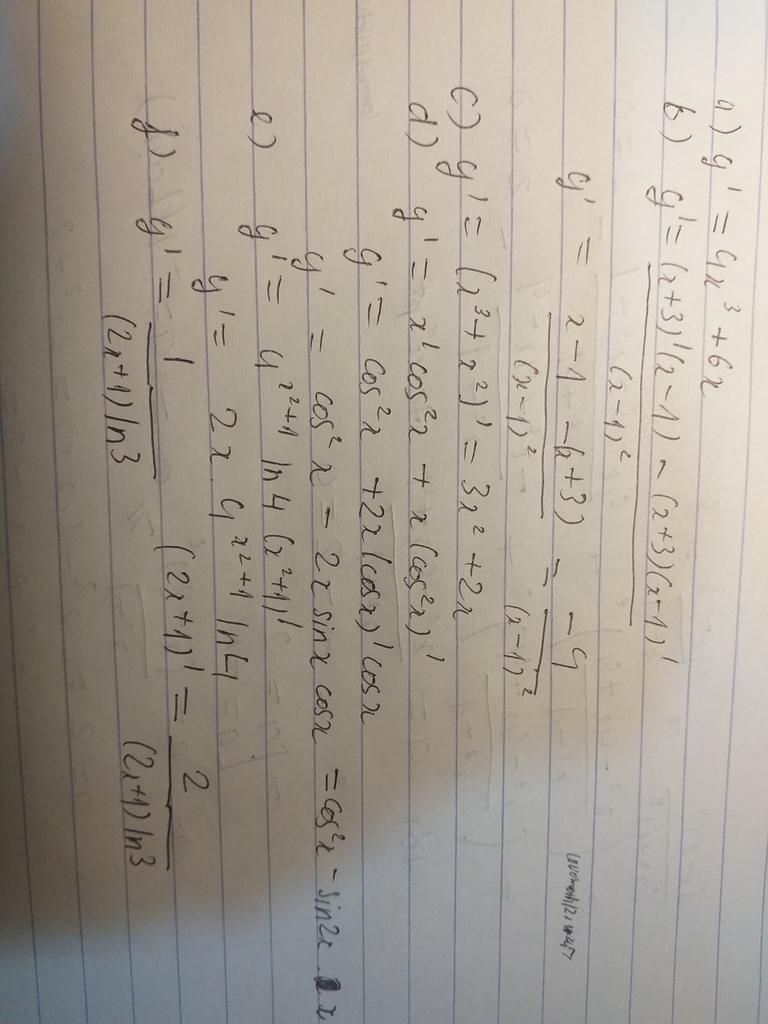 a) y' = 4x³ + 6x
b) y' = (x+3)'(x-1) - (x+3)(x-1)' / (x-1)²
y' = x-1 -(x+3) / (x-1)² = -4 / (x-1)²
c) y' = (x³ + x²)' = 3x² + 2x
d) y' = x' cos²x + x (cos²x)'
y' = cos²x + 2x (cosx)' cosx
y' = cos²x - 2x sinx cosx = cos²x - sin2x . x
e) y' = 4^(x²+1) ln4 (x²+1)'
y' = 2x 4^(x²+1) ln4
f) y' = 1 / (2x+1) ln3 (2x+1)' = 2 / (2x+1) ln3